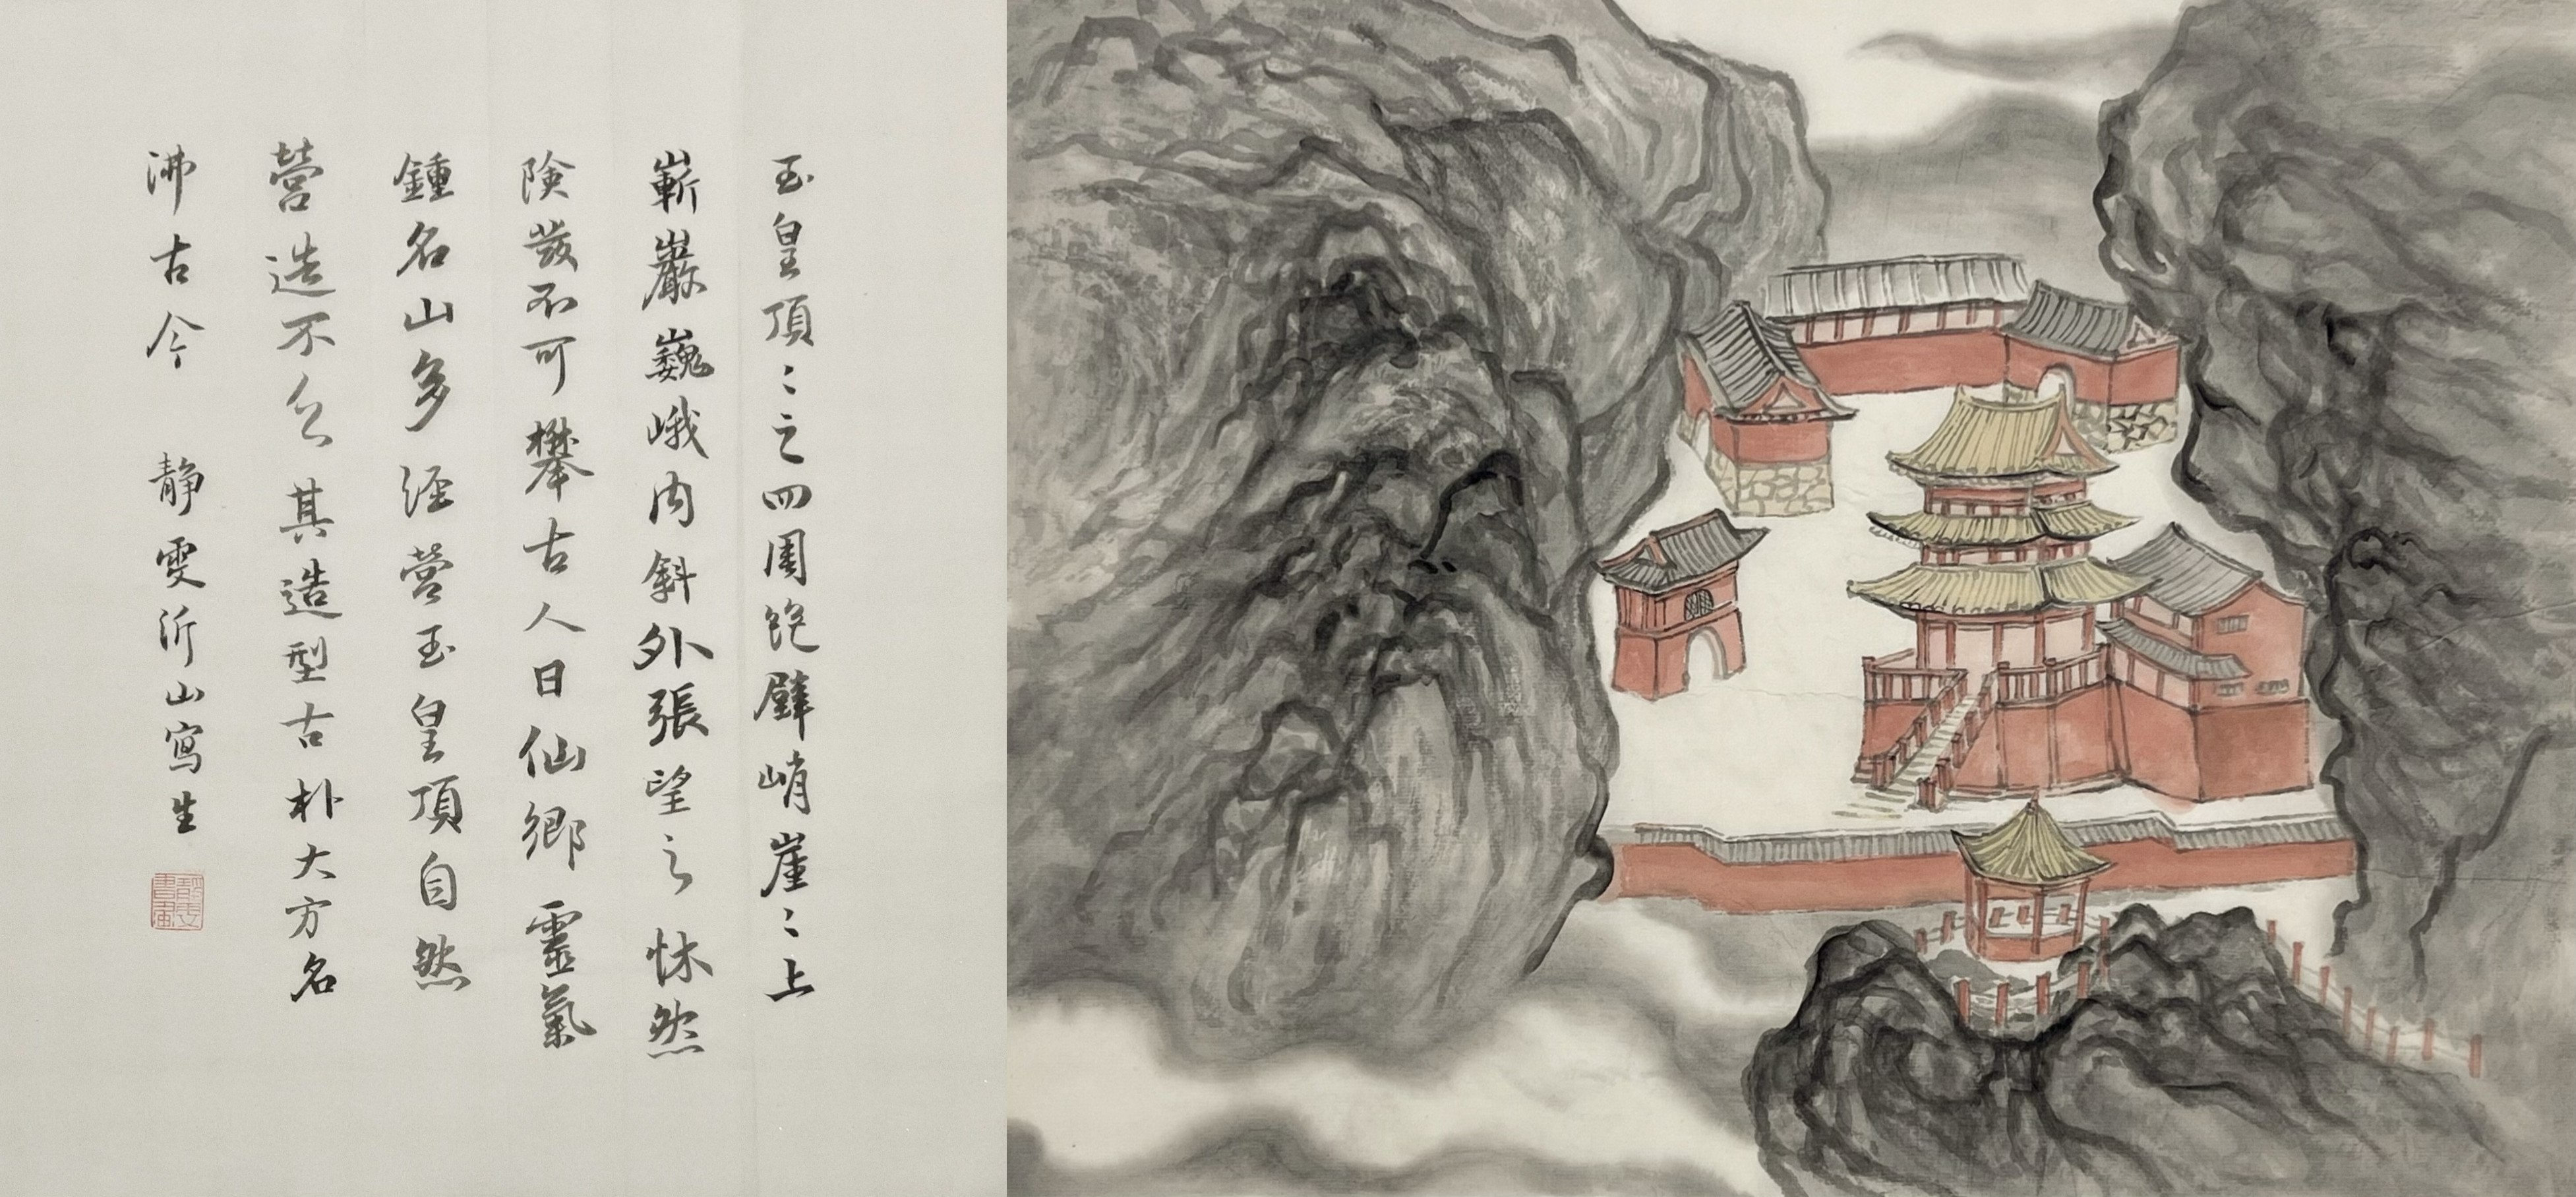 玉皇頂〻之四周絶壁峭崖〻上
嶄巖巍峨内斜外張望之怵然
険不可攀古人曰仙鄉靈氣
鍾名山多經營玉皇頂自然
營造不其造型古朴大方名
沸古今 静雯沂山寫生